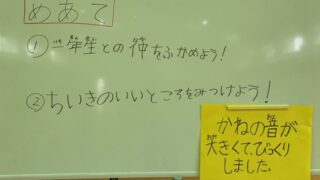 めあて
①二年生との仲をふかめよう!
②ちいきのいいところをみつけよう!
かねの音が
大きくてびっくり
しました。